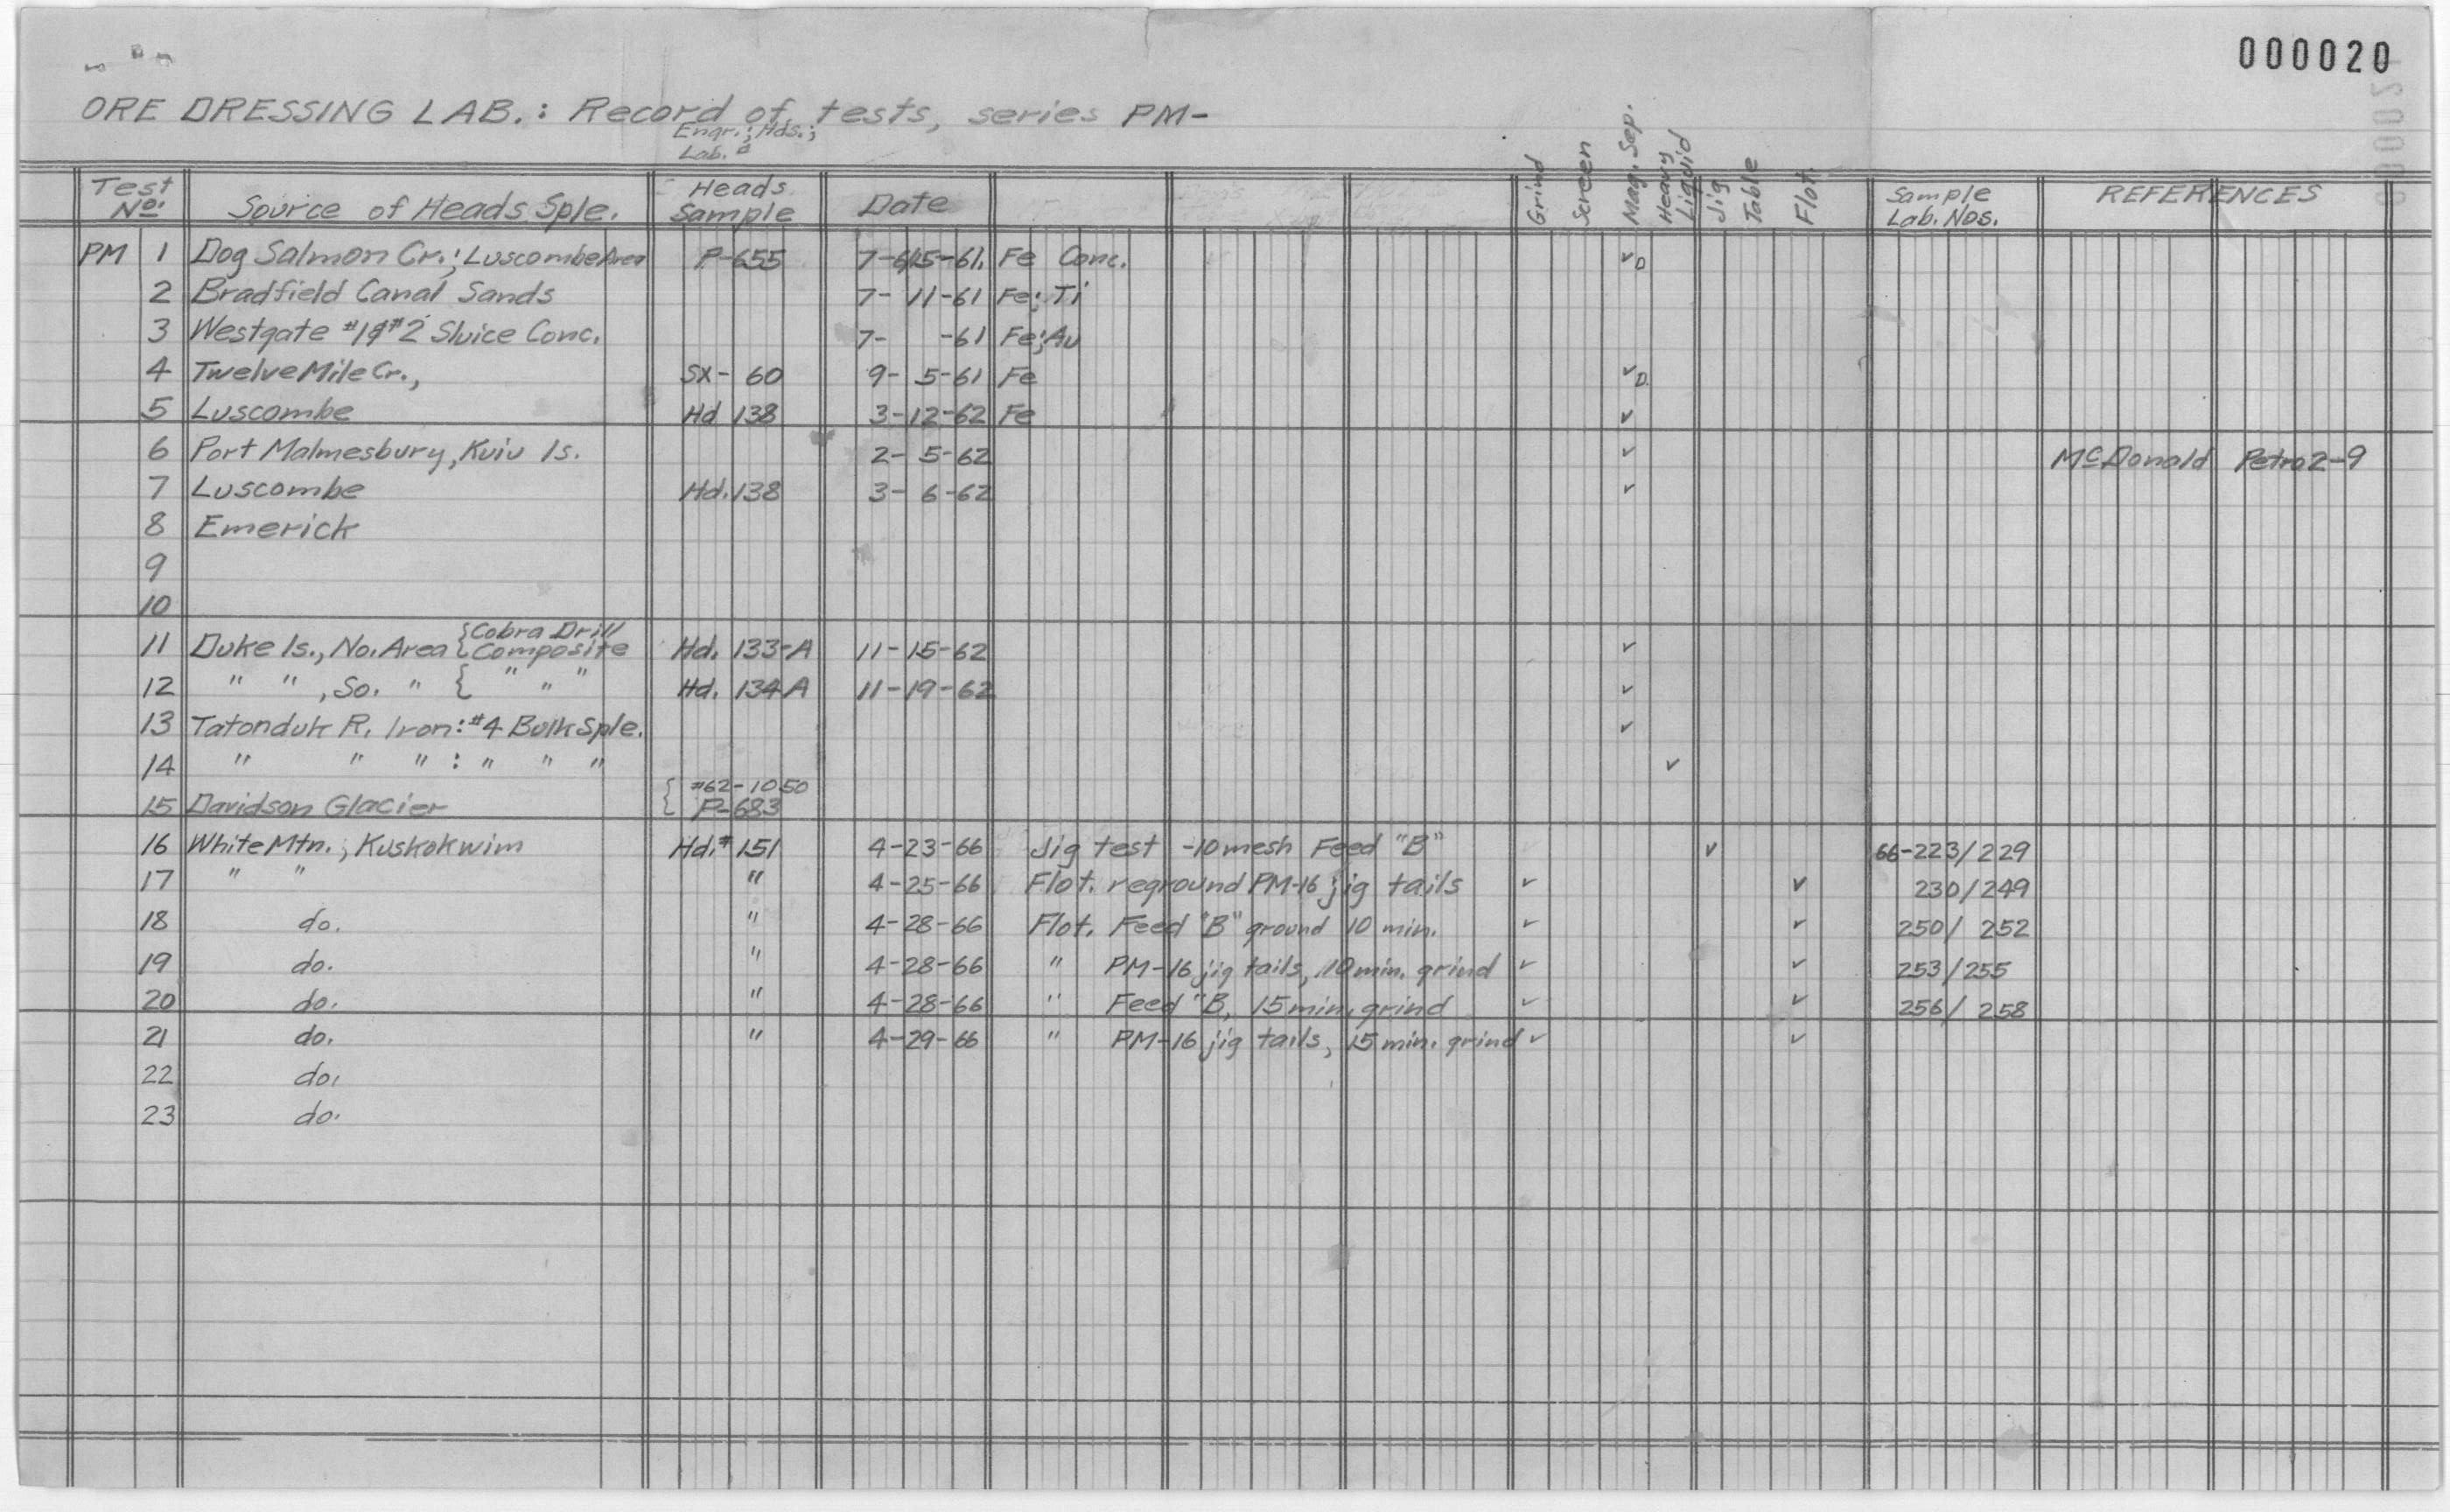 000020
ORE DRESSING LAB.: Record of tests, series PM-
Engr.; Hds.;
Lab. #
Test No. Source of Heads Sple. Heads Sample Date Grind Screen Mag. Sep. Heavy Liquid Jig Table Flot. Sample Lab. Nos. REFERENCES
PM 1 Dog Salmon Cr.; Luscombe Area P-655 7-6/15-61. Fe Conc. ✓D
2 Bradfield Canal Sands 7- 11-61 Fe; Ti
3 Westgate #1&#2 Sluice Conc. 7- -61 Fe; Au
4 Twelve Mile Cr., SX- 60 9- 5-61 Fe ✓D
5 Luscombe Hd 138 3-12-62 Fe ✓
6 Port Malmesbury, Kuiu Is. 2- 5-62 ✓ McDonald Petro 2-9
7 Luscombe Hd. 138 3- 6-62 ✓
8 Emerick
9
10
11 Duke Is., No. Area { Cobra Drill Composite Hd. 133-A 11-15-62 ✓
12 " " , So. " { " " " Hd. 134A 11-19-62 ✓
13 Tatonduk R. Iron: #4 Bulk Sple. ✓
14 " " " : " " " ✓
15 Davidson Glacier { #62-1050 P-683
16 White Mtn.; Kuskokwim Hd. # 151 4-23-66 Jig test -10 mesh Feed "B" ✓ 66-223/229
17 " " " 4-25-66 Flot. reground PM-16 jig tails ✓ ✓ 230/249
18 do. " 4-28-66 Flot. Feed "B" ground 10 min. ✓ ✓ 250/252
19 do. " 4-28-66 " PM-16 jig tails, 10 min. grind ✓ ✓ 253/255
20 do. " 4-28-66 " Feed "B, 15 min. grind ✓ ✓ 256/258
21 do. " 4-29-66 " PM-16 jig tails, 15 min. grind ✓ ✓
22 do.
23 do.